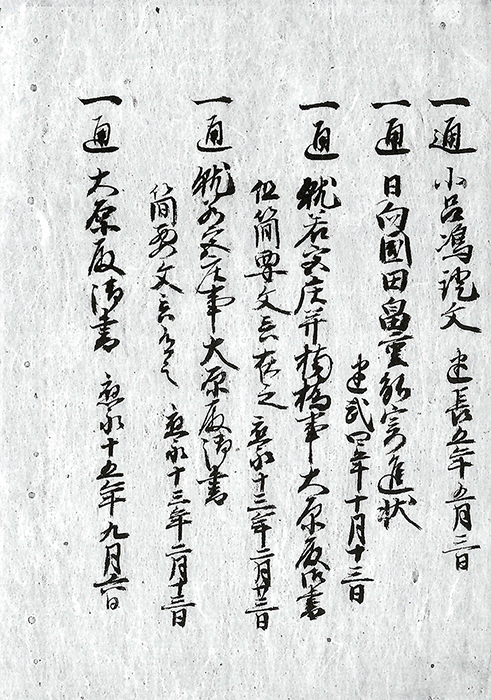 一通 小呂嶋證文 建長五年五月三日
一通 日向國田畠重能寄進状
建武四年十月十三日
一通 就若宮庄并楠橋事大原殿御書
但簡要文言在之 應永十三年二月廿三日
一通 就若宮庄事大原殿御書
簡要文言在之 應永十三年二月十三日
一通 大原殿御書 應永十五年九月六日